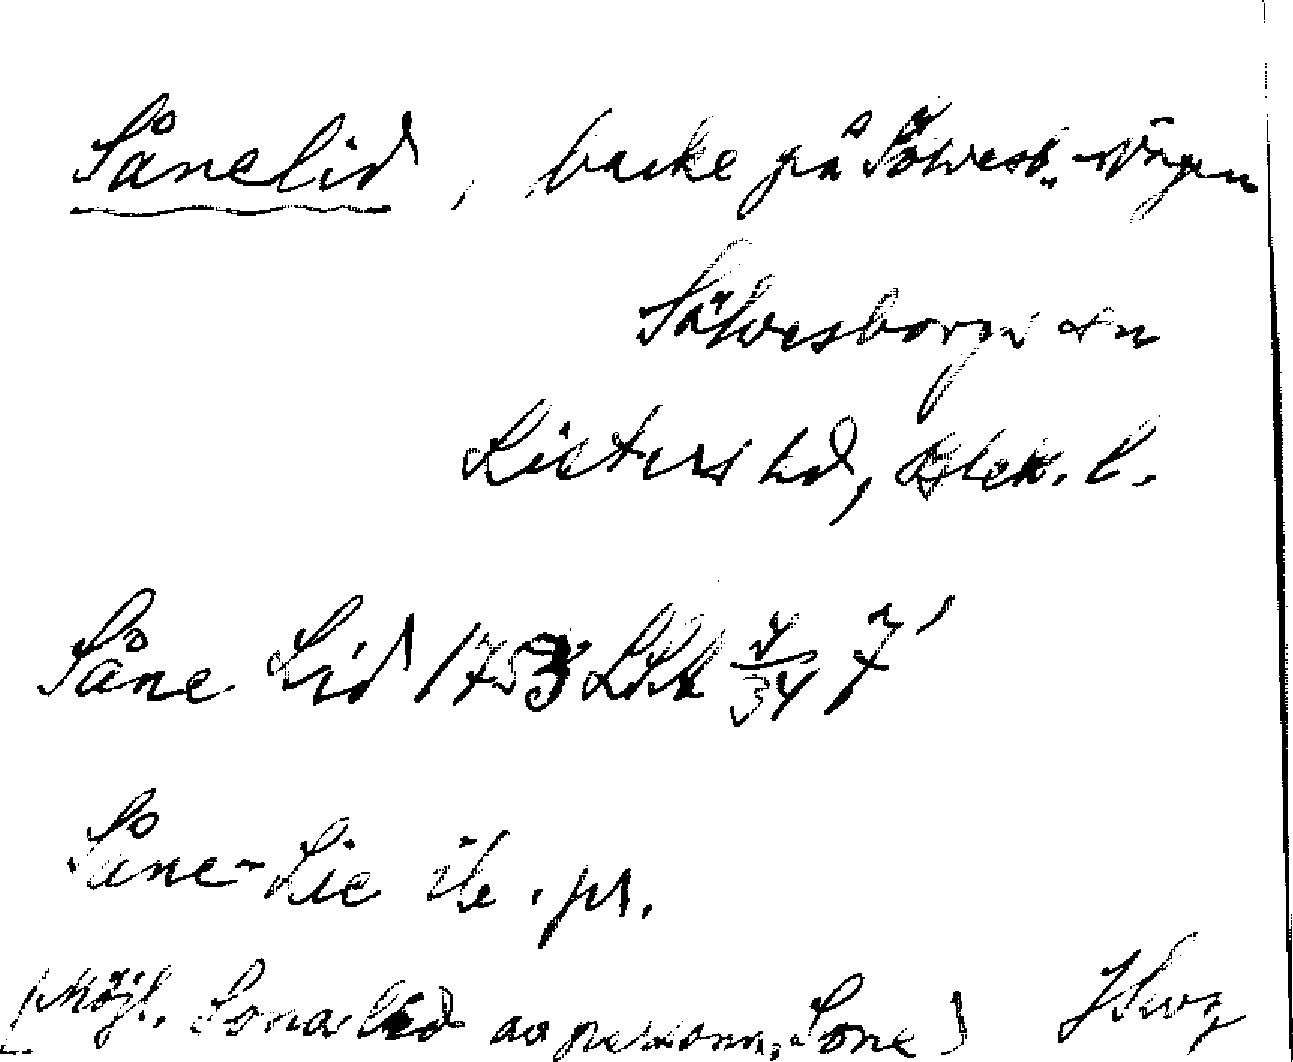 Sånelid, backe på Sölvesb.-vägen
Sölvesborgs sn
Listers hd, Blek. l.
Såne Lid 1753 LSA 7/34 7'
Såne-Lie ib. pr.
[Möjl. Sona lid av personn. Sone]